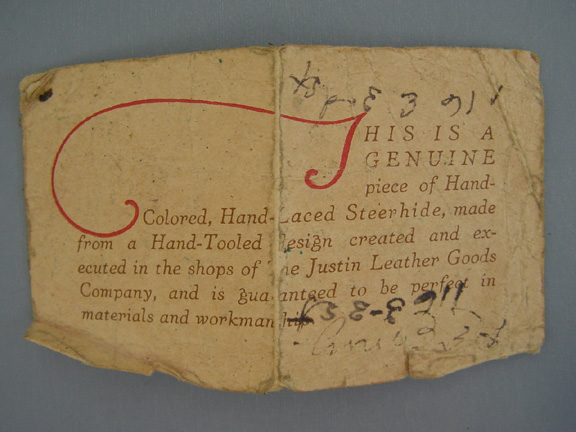 THIS IS A
GENUINE
piece of Hand-
Colored, Hand-Laced Steerhide, made
from a Hand-Tooled design created and ex-
ecuted in the shops of the Justin Leather Goods
Company, and is guaranteed to be perfect in
materials and workmanship